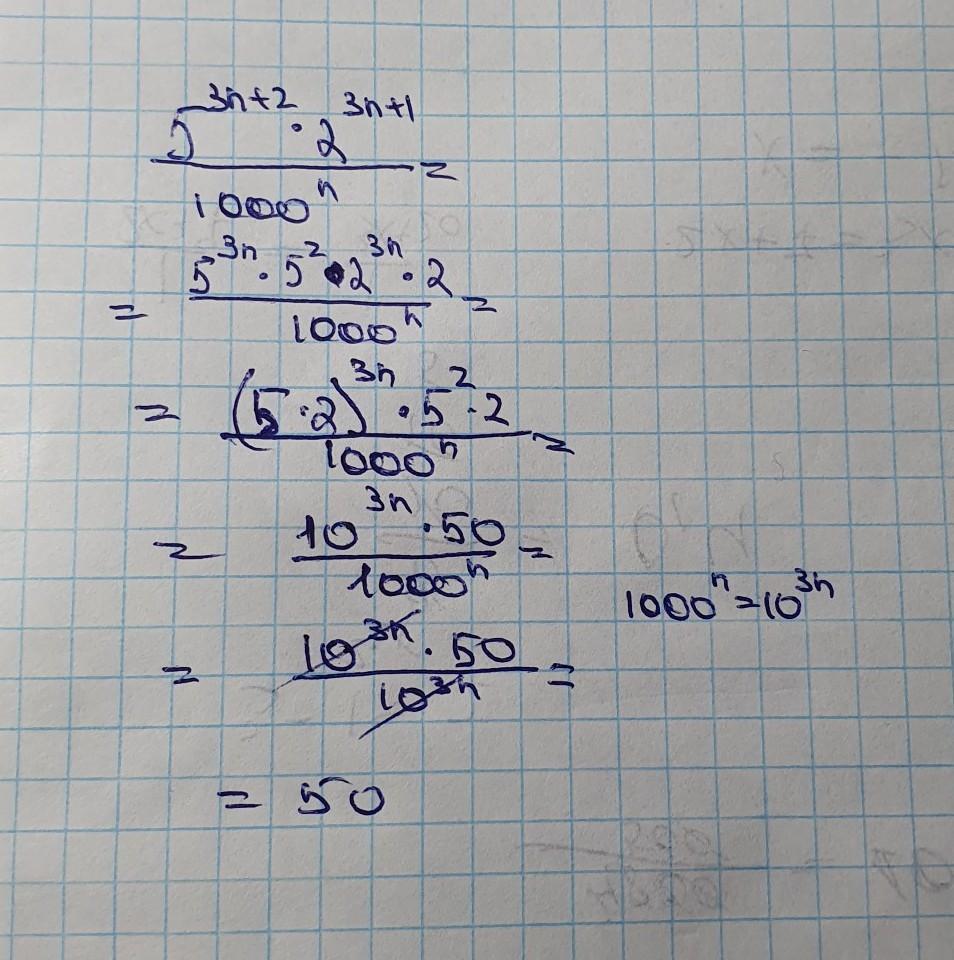 5^{3n+2} · 2^{3n+1}
1000^n =
= 5^{3n} · 5^2 · 2^{3n} · 2
1000^n =
= (5 · 2)^{3n} · 5^2 · 2
1000^n =
= 10^{3n} · 50
1000^n =
1000^n = 10^{3n}
= 10^{3n} · 50
10^{3n} =
= 50